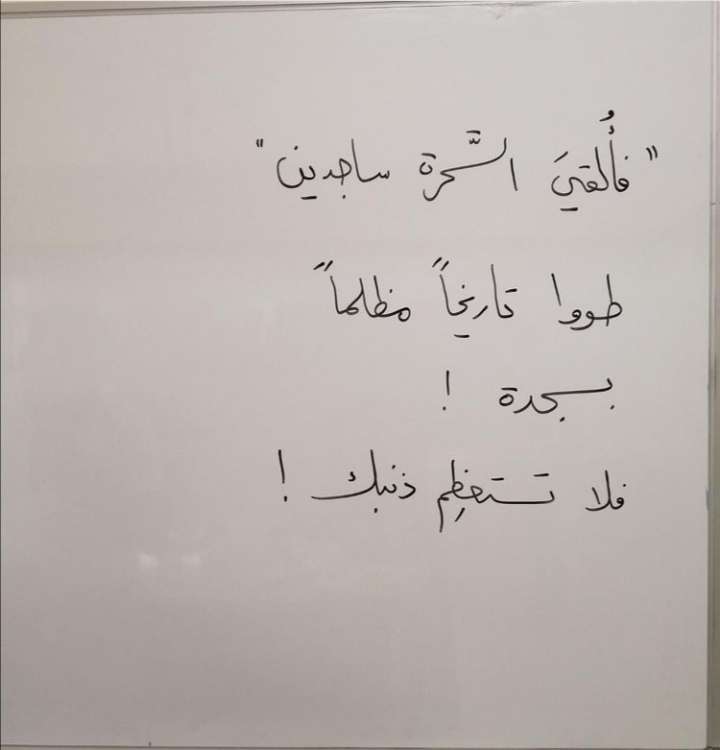 "فأُلقيَ السَّحرة ساجدين"
طووا تاريخاً مظلماً
بسجدة !
فلا تستعظِم ذنبك !